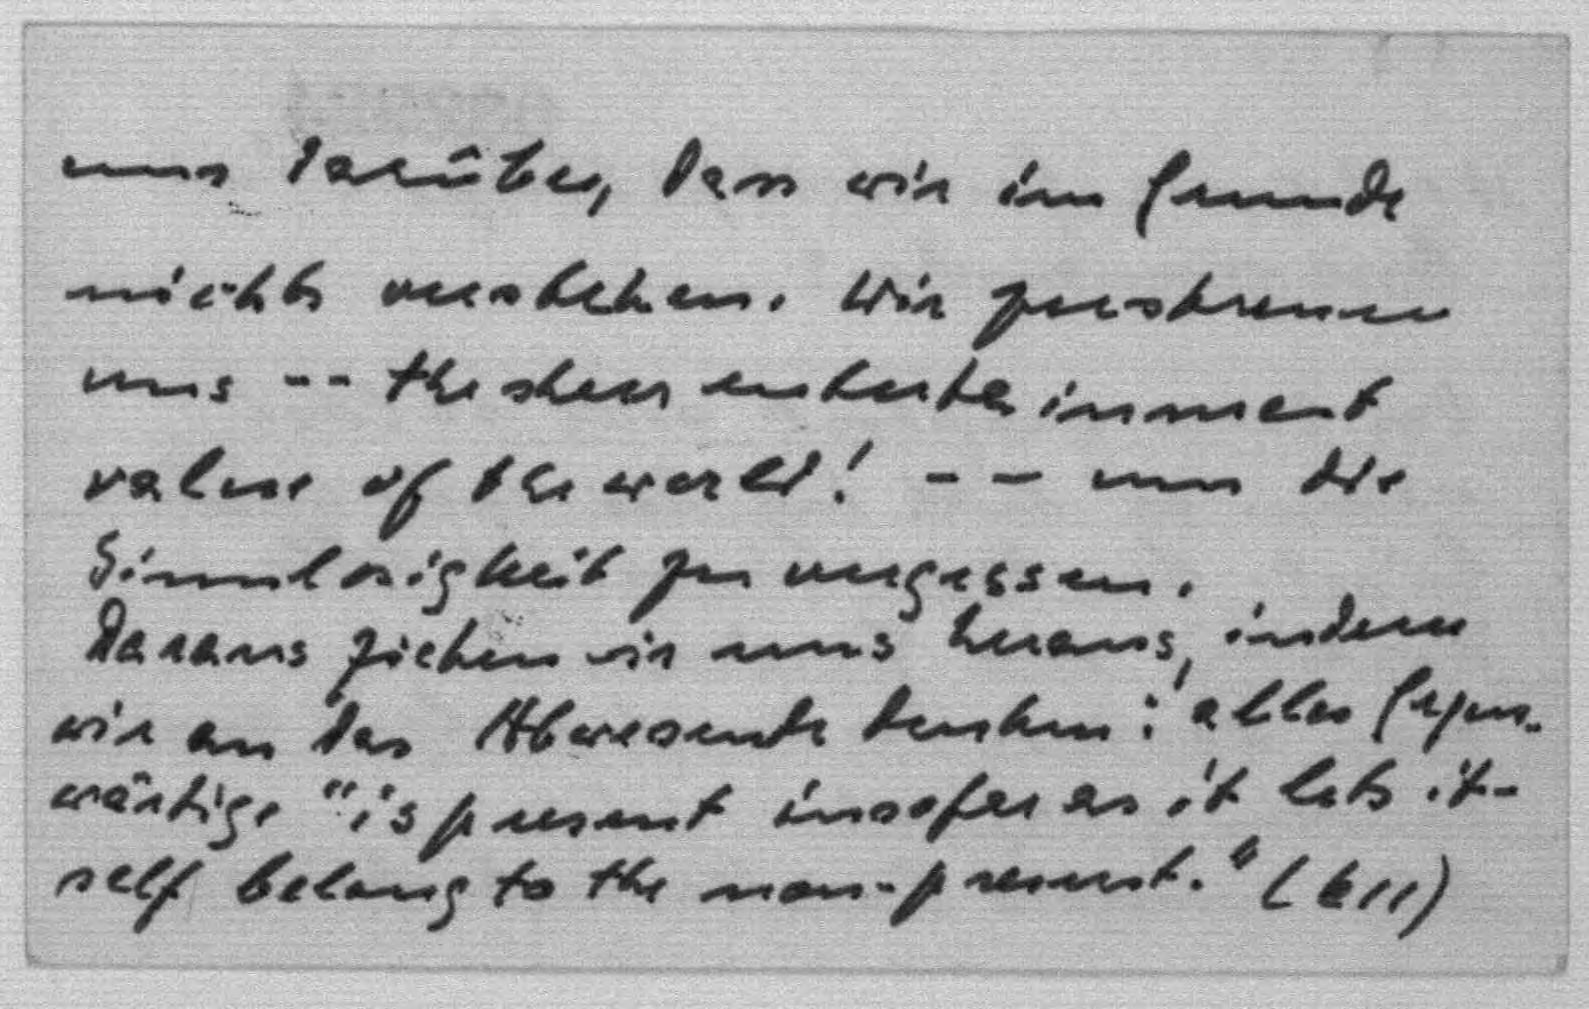 uns darüber, dass wir im Grunde
nichts verstehen. Wir zerstreuen
uns -- the sheer entertainment
value of the world! -- um die
Sinnlosigkeit zu vergessen.
Daraus ziehen wir uns heraus, indem
wir an das Abwesende denken: alles Gegen-
wärtige "is present insofar as it lets it-
self belong to the non-present." (611)